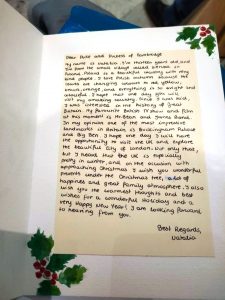 Dear Duke and Duchess of Cambridge
My name is Natalia. I'm thirteen years old, and
I'm from the small village called in
Poland. Poland is a beautiful country with many
kind people. I love Polish autumn, because the
leaves are changing colours to red, yellow,
brown, orange, and everything is so bright and
colourful. I hope that one day you will
visit my amazing country. Since I was kid,
I was interested in the history of Great
Britain. My favourite British TV show and film
at this moment is Mr Bean and James Bond.
In my opinion one of the most impressive
landmarks in Britain is Buckingham Palace
and Big Ben. I hope one day I will have
the opportunity to visit the UK and explore
the beautiful city of London. Not only that,
but I heard that the UK is especially
pretty in winter, and on the occasion with
approaching Christmas I wish you wonderful
presents under the Christmas tree, a lot of
happiness and great family atmosphere. I also
wish you the warmest thoughts and best
wishes for a wonderful Holidays and a
very Happy New Year! I am looking forward
to hearing from you.
Best Regards,
Natalia